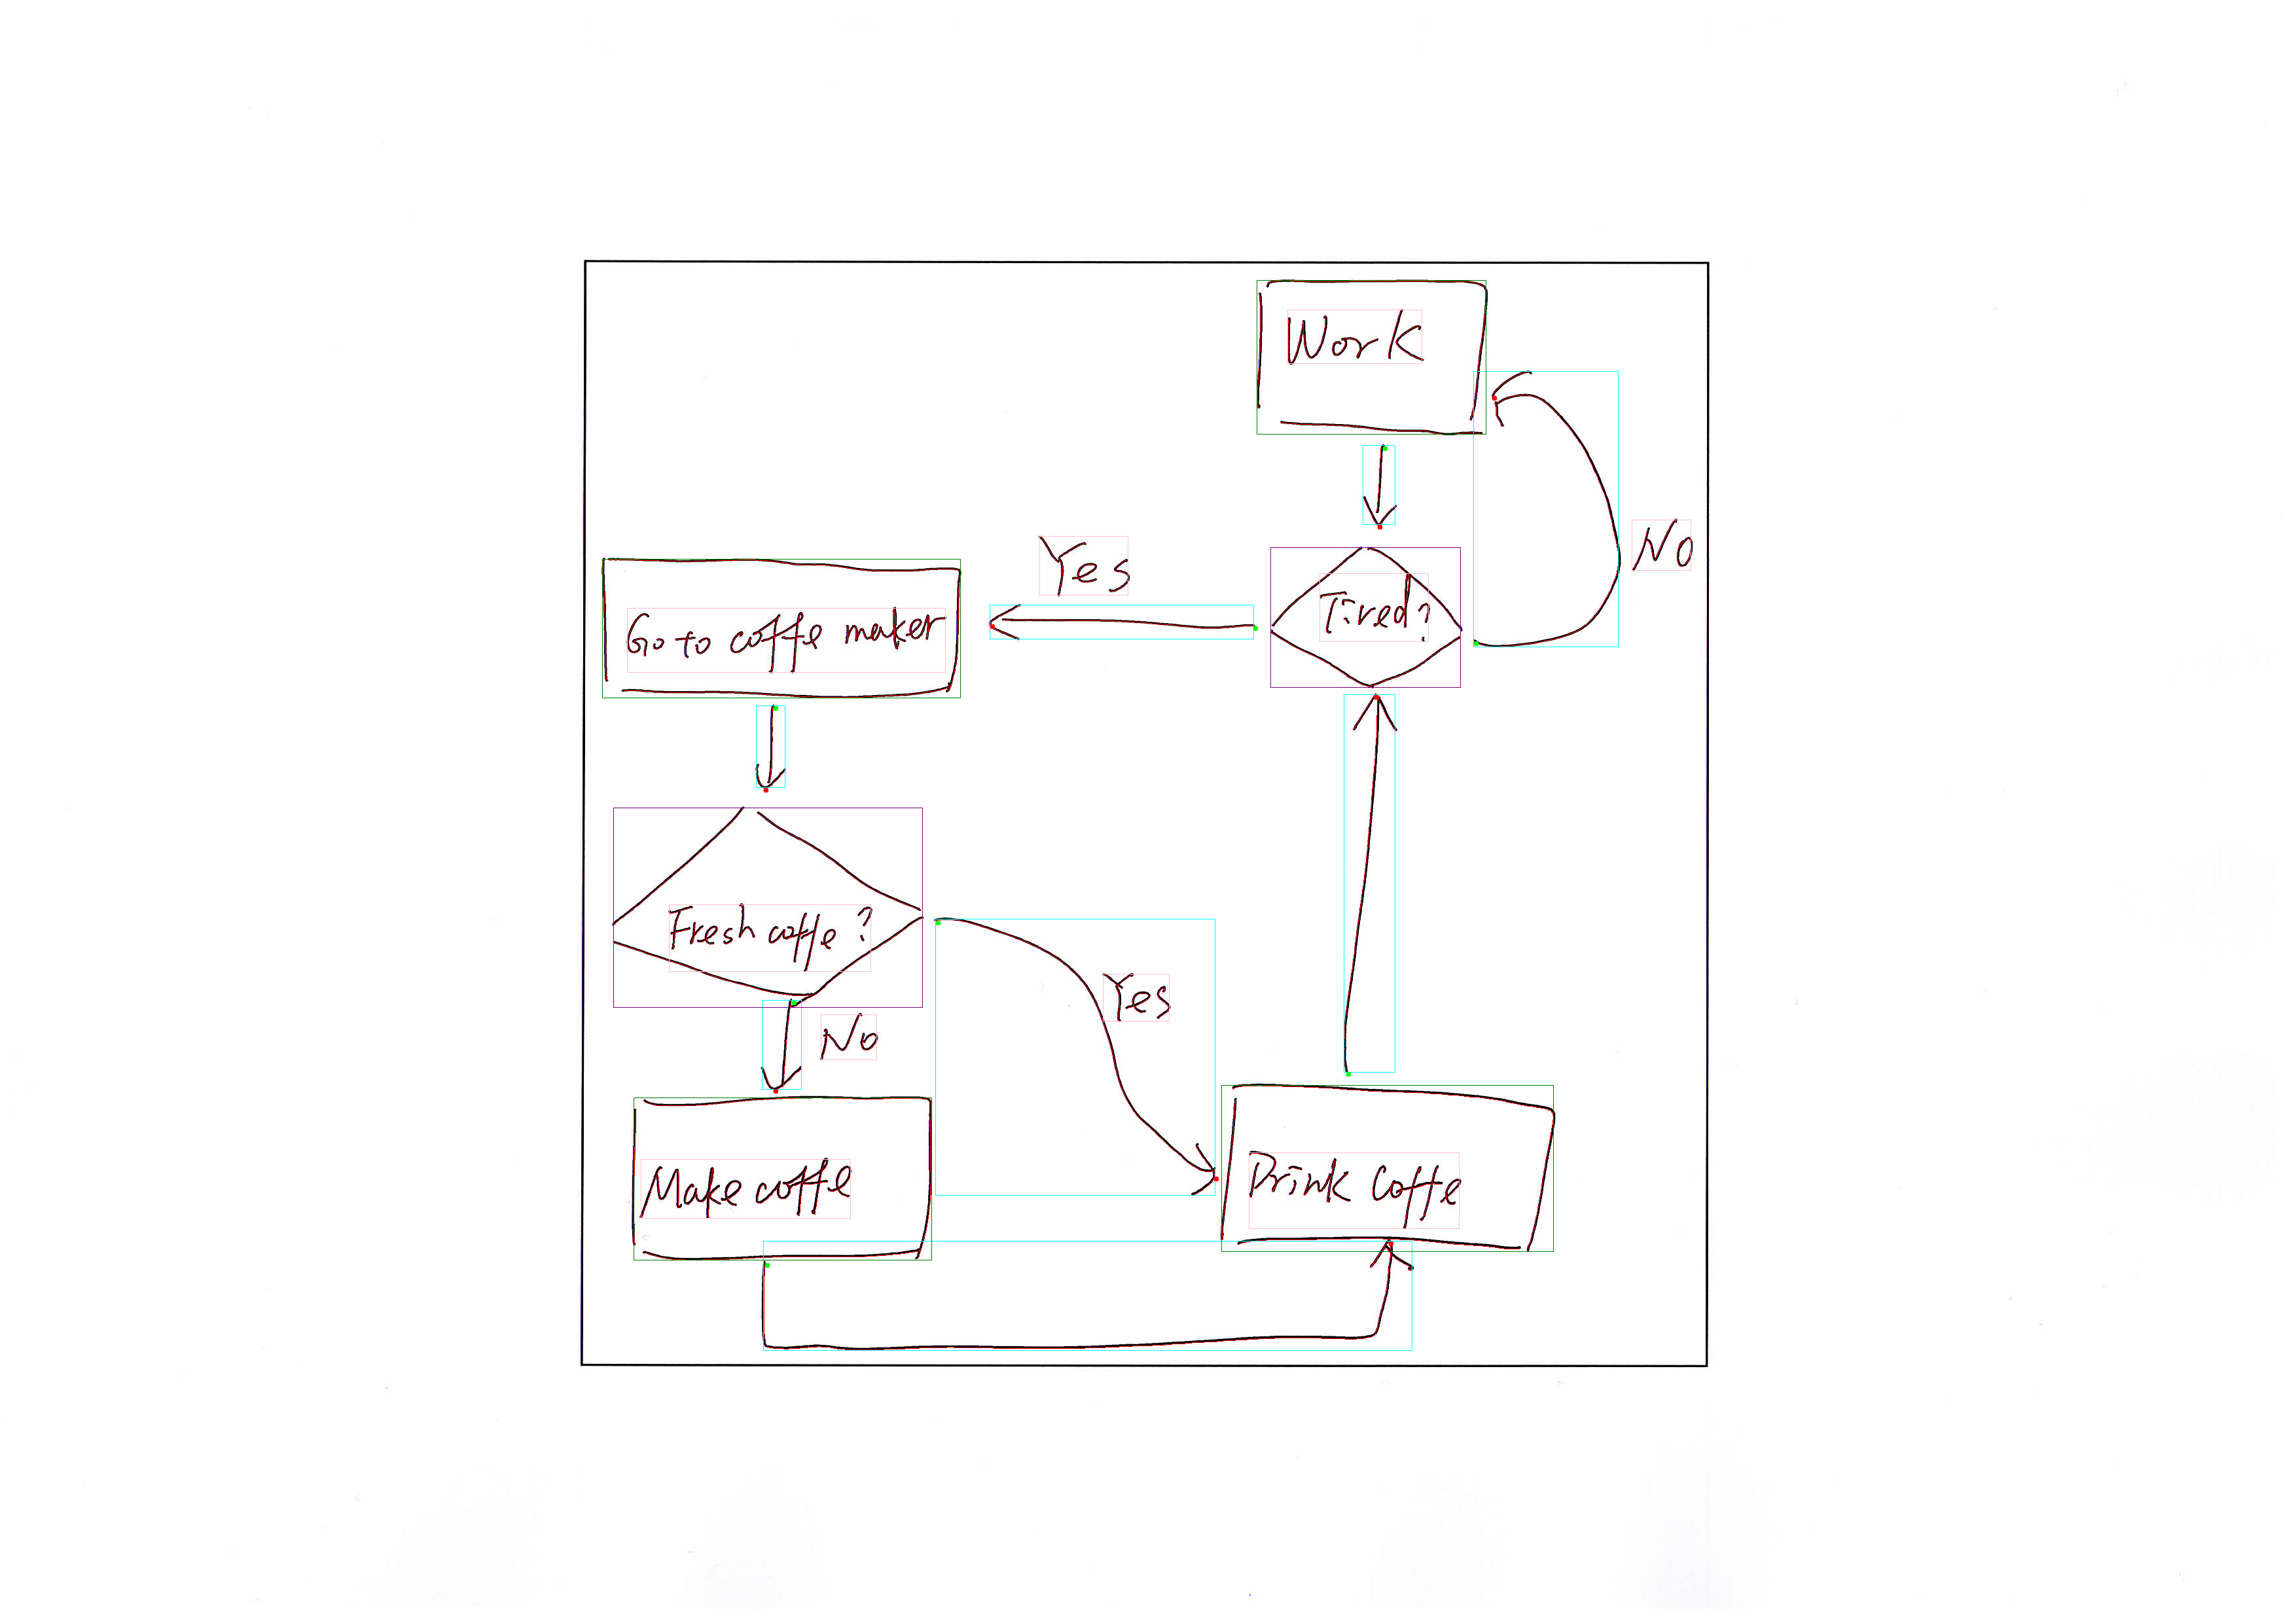 Work
No
Yes
Tired?
Go to coffe maker
Fresh coffe?
Yes
No
Make coffe
Drink Coffe